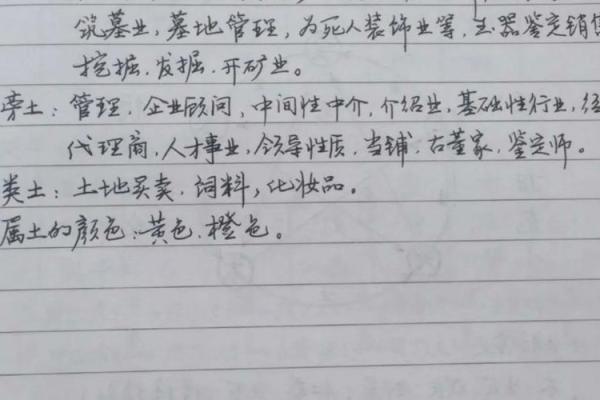 筑墓业，墓地管理，为死人装饰业等，玉器鉴定销售
挖掘、发掘、开矿业。
旁土：管理、企业顾问，中间性中介，介绍业，基础性行业，经
代理商，人才事业，领导性质、当铺、古董家、鉴定师。
类土：土地买卖、饲料，化妆品。
属土的颜色：黄色、橙色。